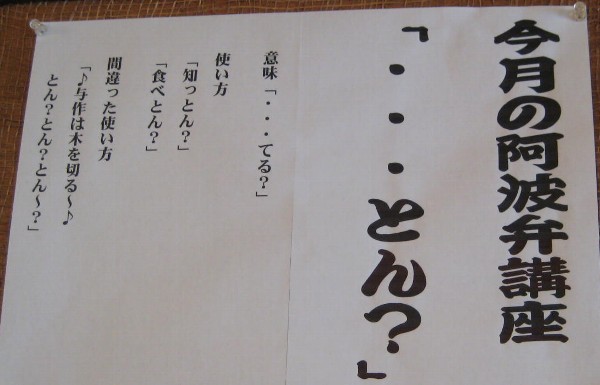 今月の阿波弁講座
「・・・とん?」
意味「・・・てる?」
使い方
「知っとん?」
「食べとん?」
間違った使い方
「♪与作は木を切る~♪
とん?とん?とん~?」